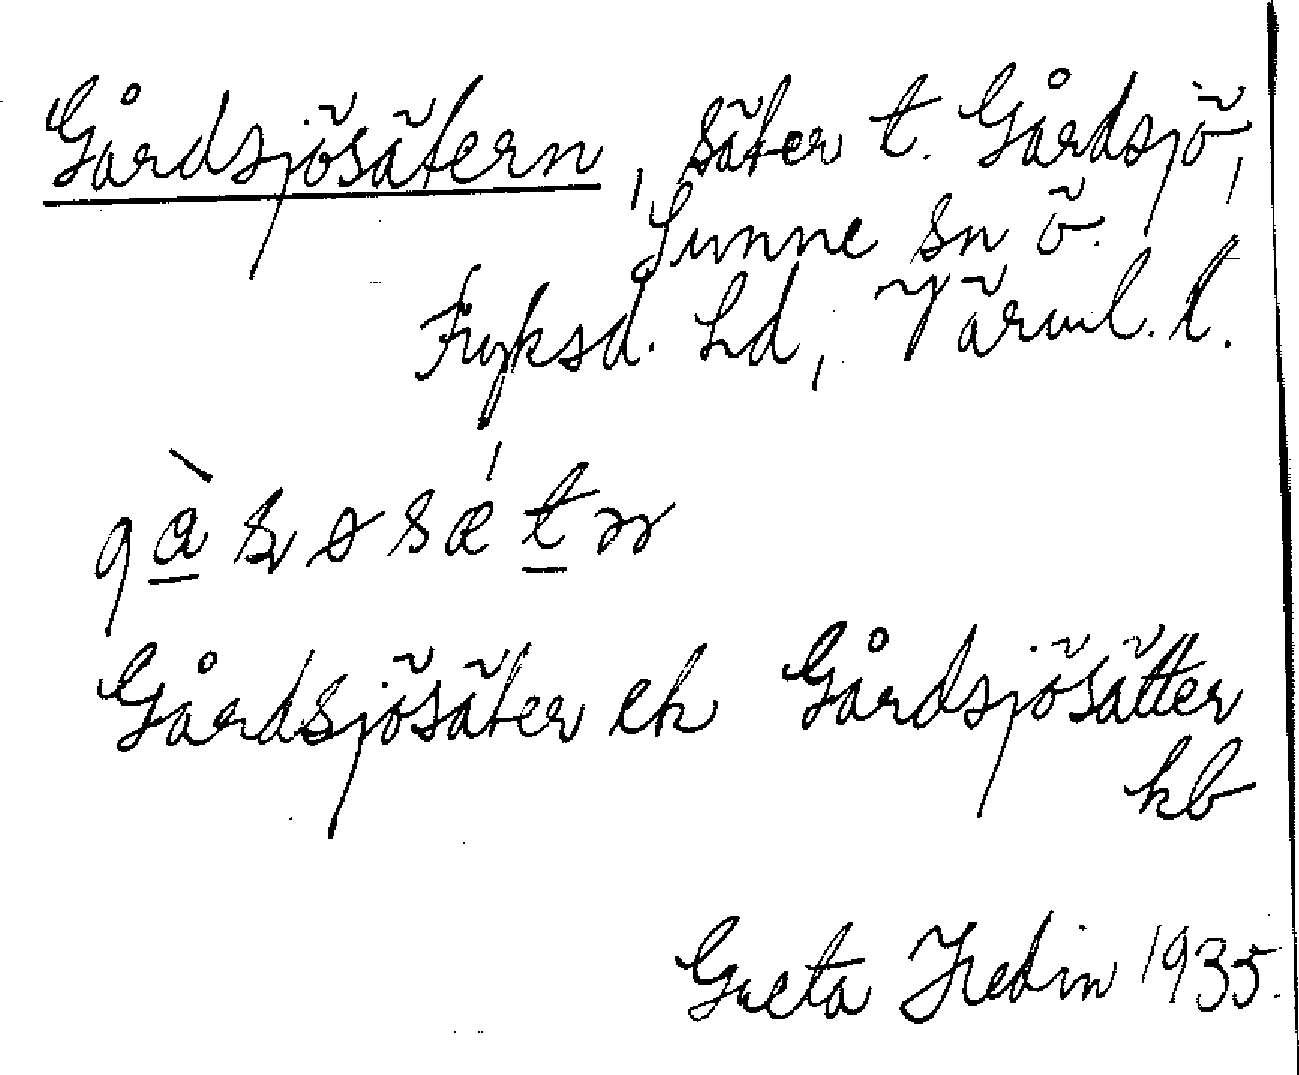 Gårdsjösätern, säter t. Gårdsjö,
Sunne sn ö.
Fryksd. hd, Värml. l.
Gårdsjösäter ek Gårdsjösätter
kb
Greta Hedin 1935.